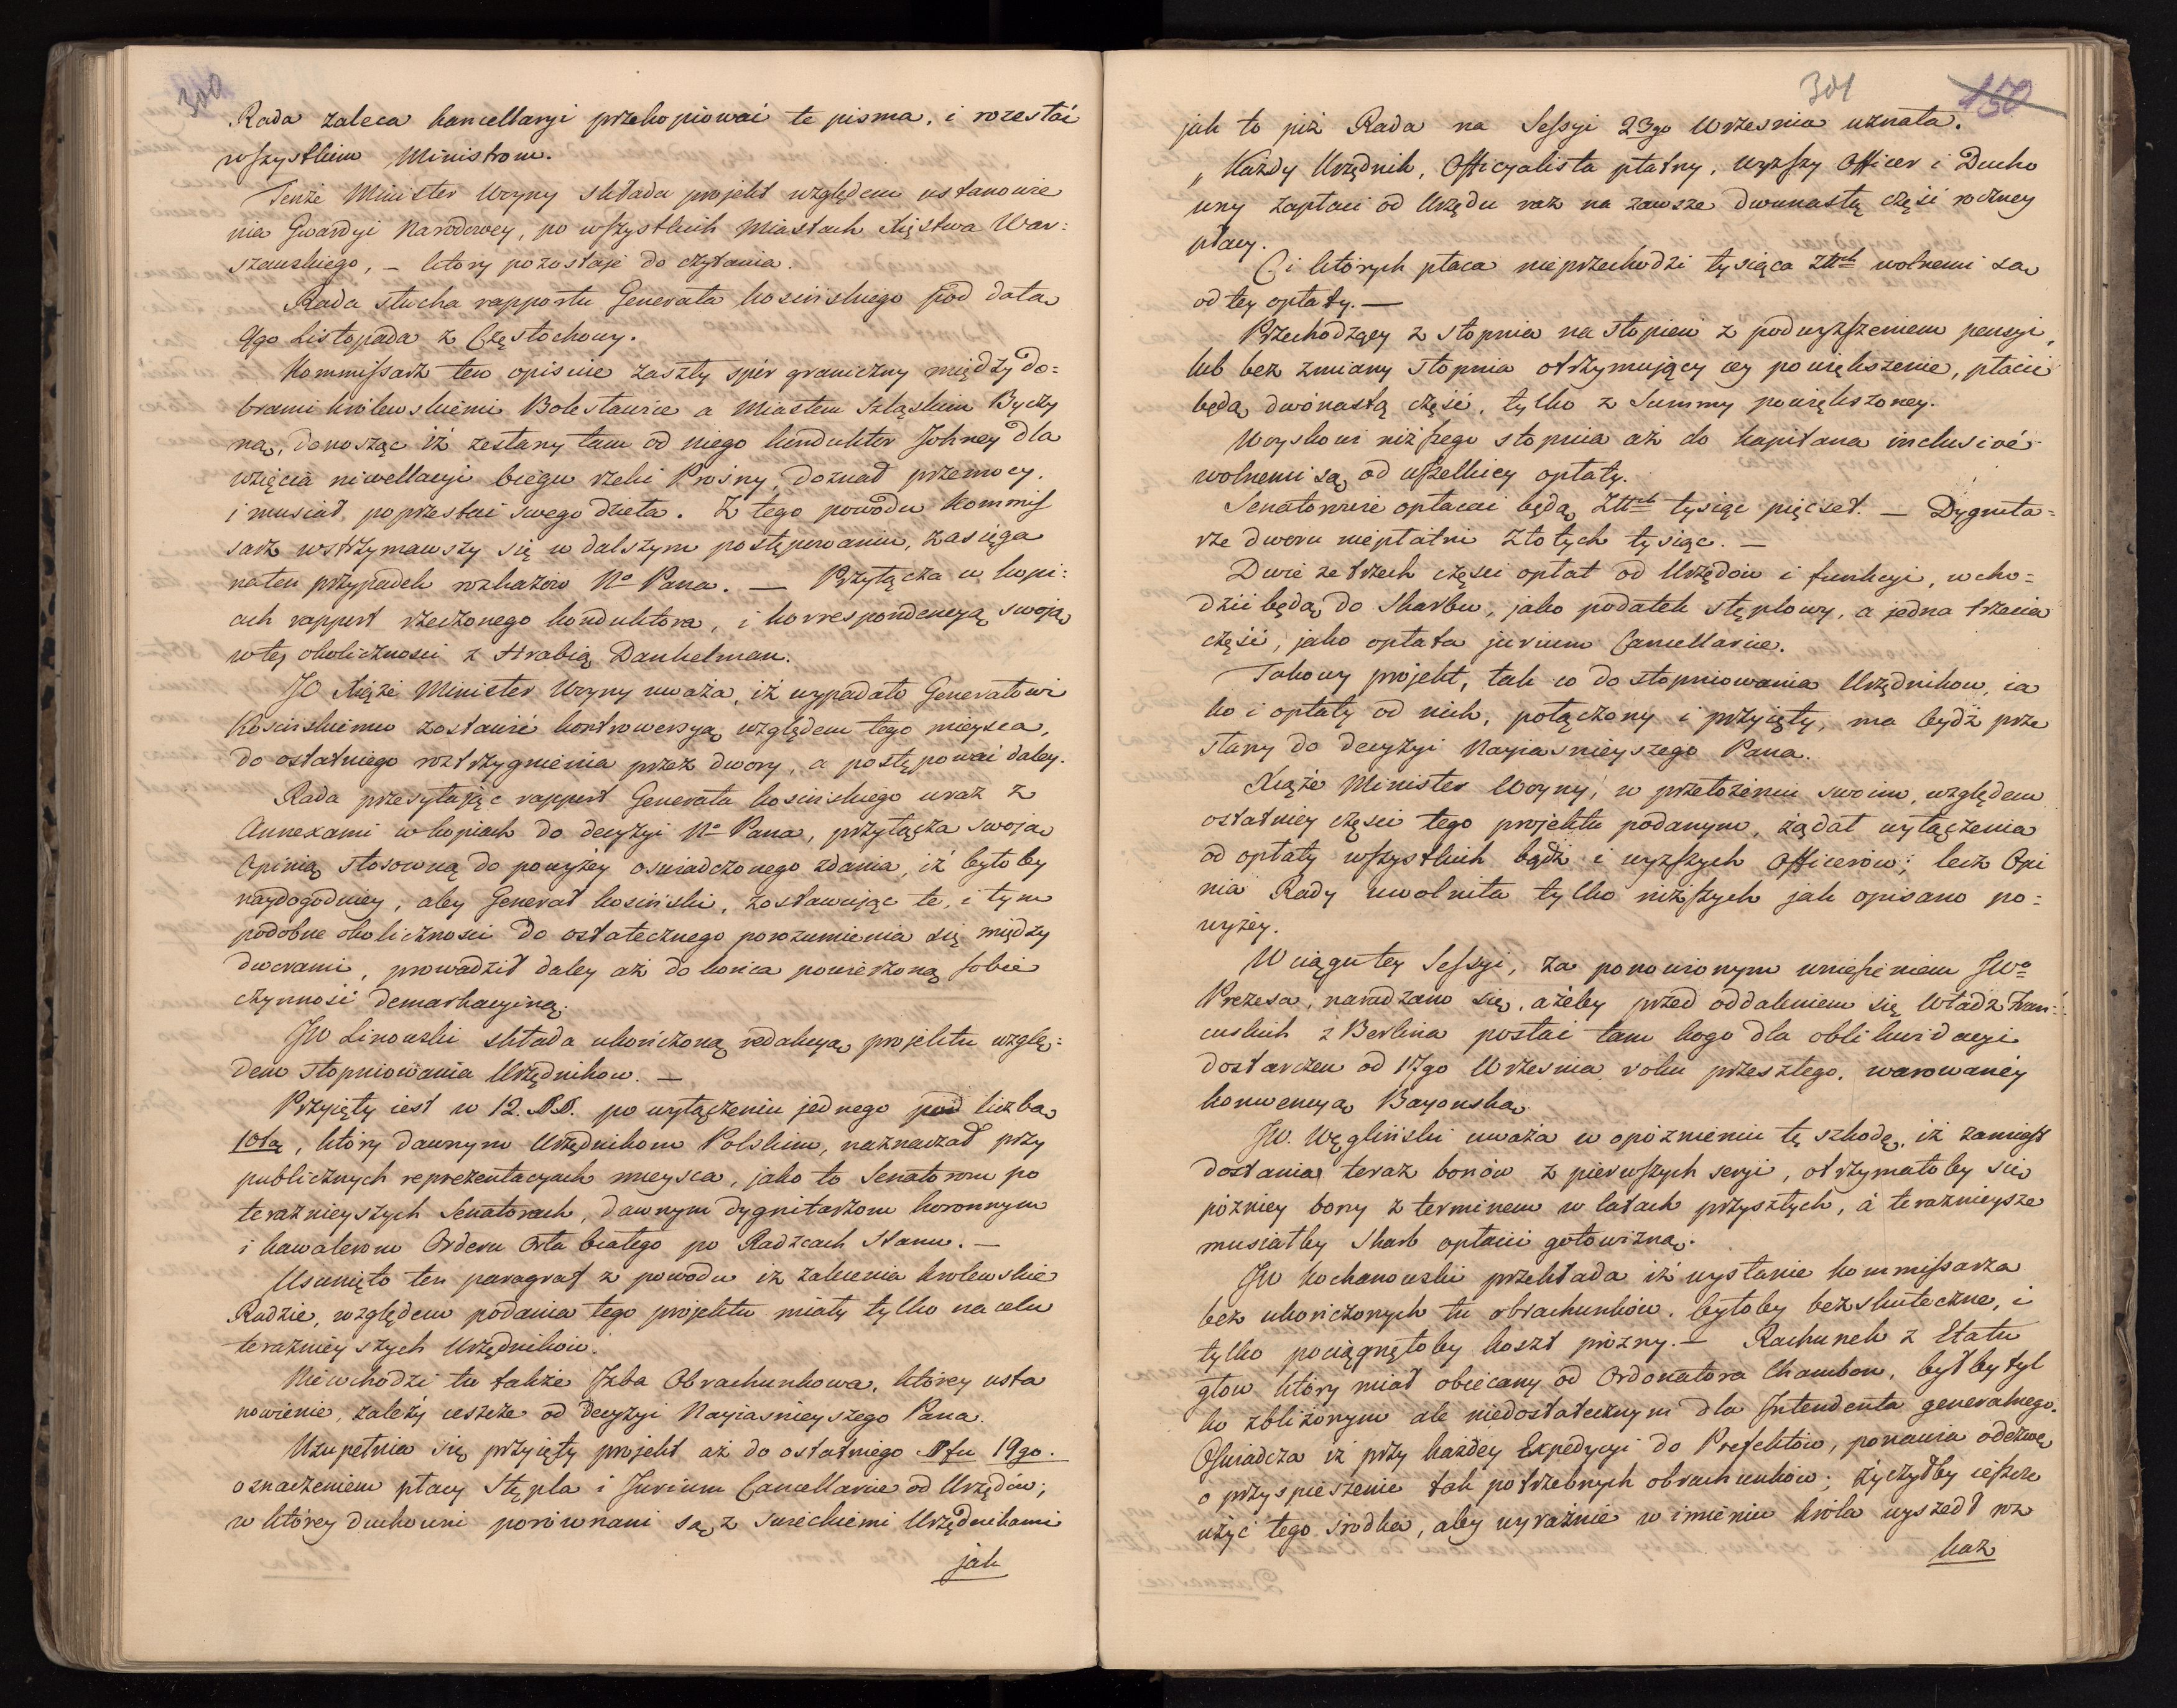 300
Rada zaleca kancellaryi przekopiować te pisma, i rozesłać
wszystkim Ministrom.
Tenże Minister Woyny składa projekt względem ustanowie
nia Gwardyi Narodowey, po wszystkich Miastach Xięstwa War:
szawskiego, – ktory pozostaje do czytania.
Rada słucha rapportu Generała Kosińskiego pod datą
9go Listopada z Częstochowy.
Kommissarz ten opisuie zaszły spór graniczny między do=
brami królewskiemi Bolesławice a Miastem Szląskim Byczy
ną, donosząc iż zesłany tam od niego konduktor Johney dla
wzięcia niwellacyi biegu rzeki Prosny, doznał przemocy,
i musiał poprzestać swego dzieła. Z tego powodu Kommis
sarz wstrzymawszy się w dalszym postępowaniu, zasięga
na ten przypadek rozkazów No Pana. — Przyłącza w kopi:
ach rapport rzeczonego konduktora, i korrespondencyą swoją
w tey okoliczności z Hrabią Dankelman.
JO Xiąże Minister Woyny uważa, iż wypadało Generałowi
Kosińskiemu zostawić kontrowersyą względem tego mieysca,
do ostatniego roztrzygnienia przez dwory, a postępować daley.
Rada przesyłając rapport Generała Kosińskiego wraz z
Annexami w kopiach do decyzyi No Pana, przyłącza swoją
Opinią stosowną do powyżey oswiadczonego zdania, iż byłoby
naydogodniey, aby Generał Kosiński, zostawując te, i tym
podobne okoliczności do ostatecznego porozumienia się między
dworami, prowadził daley aż do końca powierzoną sobie
czynność demarkacyiną.
JW Linowski składa ukończoną redakcyą projektu wzglę=
dem stopniowania Urzędnikow. —
Przyięty iest w 12. §§. po wyłączeniu jednego pod liczbą
10tą, który dawnym Urzędnikom Polskim, naznaczał przy
publicznych reprezentacyach mieysca, jako to Senatorom po
teraznieyszych Senatorach, dawnym dygnitarzom koronnym
i kawalerom Orderu Orła białego po Radzcach Stanu. —
Usunięto ten paragraf z powodu iż zalecenia krolewskie
Radzie, względem podania tego projektu miały tylko na celu
teraznieyszych Urzędników.
Niewchodzi tu także Izba Obrachunkowa, którey usta
nowienie, zależy ieszcze od decyzyi Nayiasnieyszego Pana.
Uzupełnia się przyięty projekt aż do ostatniego §fu 19go.
oznaczeniem płacy Stępla i Jurium Cancellariae od Urzędów;
w którey duchowni porównani są z swieckiemi Urzędnikami
jak
301
150
jak to już Rada na Sessyi 23go Września uznała.
„ Każdy Urzędnik, Officyalista płatny, wyższy Officer i Ducho
wny zapłaci od Urzędu raz na zawsze dwunastą część roczney
płacy.
Ci których płaca nieprzechodzi tysiąca Złłch wolnemi są
od tey opłaty. —
Przechodzący z stopnia na stopień z podwyższeniem pensyi,
lub bez zmiany stopnia otrzymujący iey powiększenie, płacić
będą dwónastą część, tylko z Summy powiększoney.
Woyskowi niższego stopnia aż do kapitana inclusivé
wolnemi są od wszelkiey opłaty.
Senatorowie opłacać będą Złłch tysiąc pięćset. — Dygnita=
rze dworu niepłatni Złotych tysiąc. —
Dwie ze trzech części opłat od Urzędów i funkcyi, wcho=
dzić będą do Skarbu, jako podatek stęplowy, a jedna trzecia
część, jako opłata jurium Cancellariae.
Takowy projekt, tak co do stopniowania Urzędnikow, ia
ko i opłaty od nich, połączony i przyięty, ma bydź prze
słany do decyzyi Nayiasnieyszego Pana.
Xiąże Minister Woyny, w przełożeniu swoim, względem
ostatniey części tego projektu podanym, żądał wyłączenia
od opłaty wszystkich bądź i wyższych Officerów; lecz Opi
nia Rady uwolniła tylko niższych jak opisano po=
wyżey.
W ciągu tey Sessyi, za ponowionym wniesieniem JWo
Prezesa, naradzano się, ażeby przed oddaleniem się Władz Fran=
cuskich z Berlina posłać tam kogo dla oblikwidacyi
dostarczeń od 17go Września roku przeszłego, warowaney
konwencyą Bayońską.
JW. Węgliński uważa w opóznieniu tę szkodę, iż zamiast
dostania teraz bonów z pierwszych seryi, otrzymałoby się
pózniey bony z terminem w latach przyszłych, á teraznieysze
musiałby Skarb opłacić gotowizną.
JW Kochanowski przekłada iż wysłanie kommissarza
bez ukończonych tu obrachunków, byłoby bezskuteczne, i
tylko pociągnęłoby koszt prózny. — Rachunek z Etatu
głow który miał obiecany od Ordonatora Chambon, byłby tyl
ko zbliżonym ale niedostatecznym dla Intendenta generalnego.
Oświadcza iż przy każdey Expedycyi do Prefektów, ponawia odezwę
o przyspieszenie tak potrzebnych obrachunków; życzyłby ieszcze
użyć tego srodka, aby wyraźnie w imieniu króla wyszedł roz
kaz